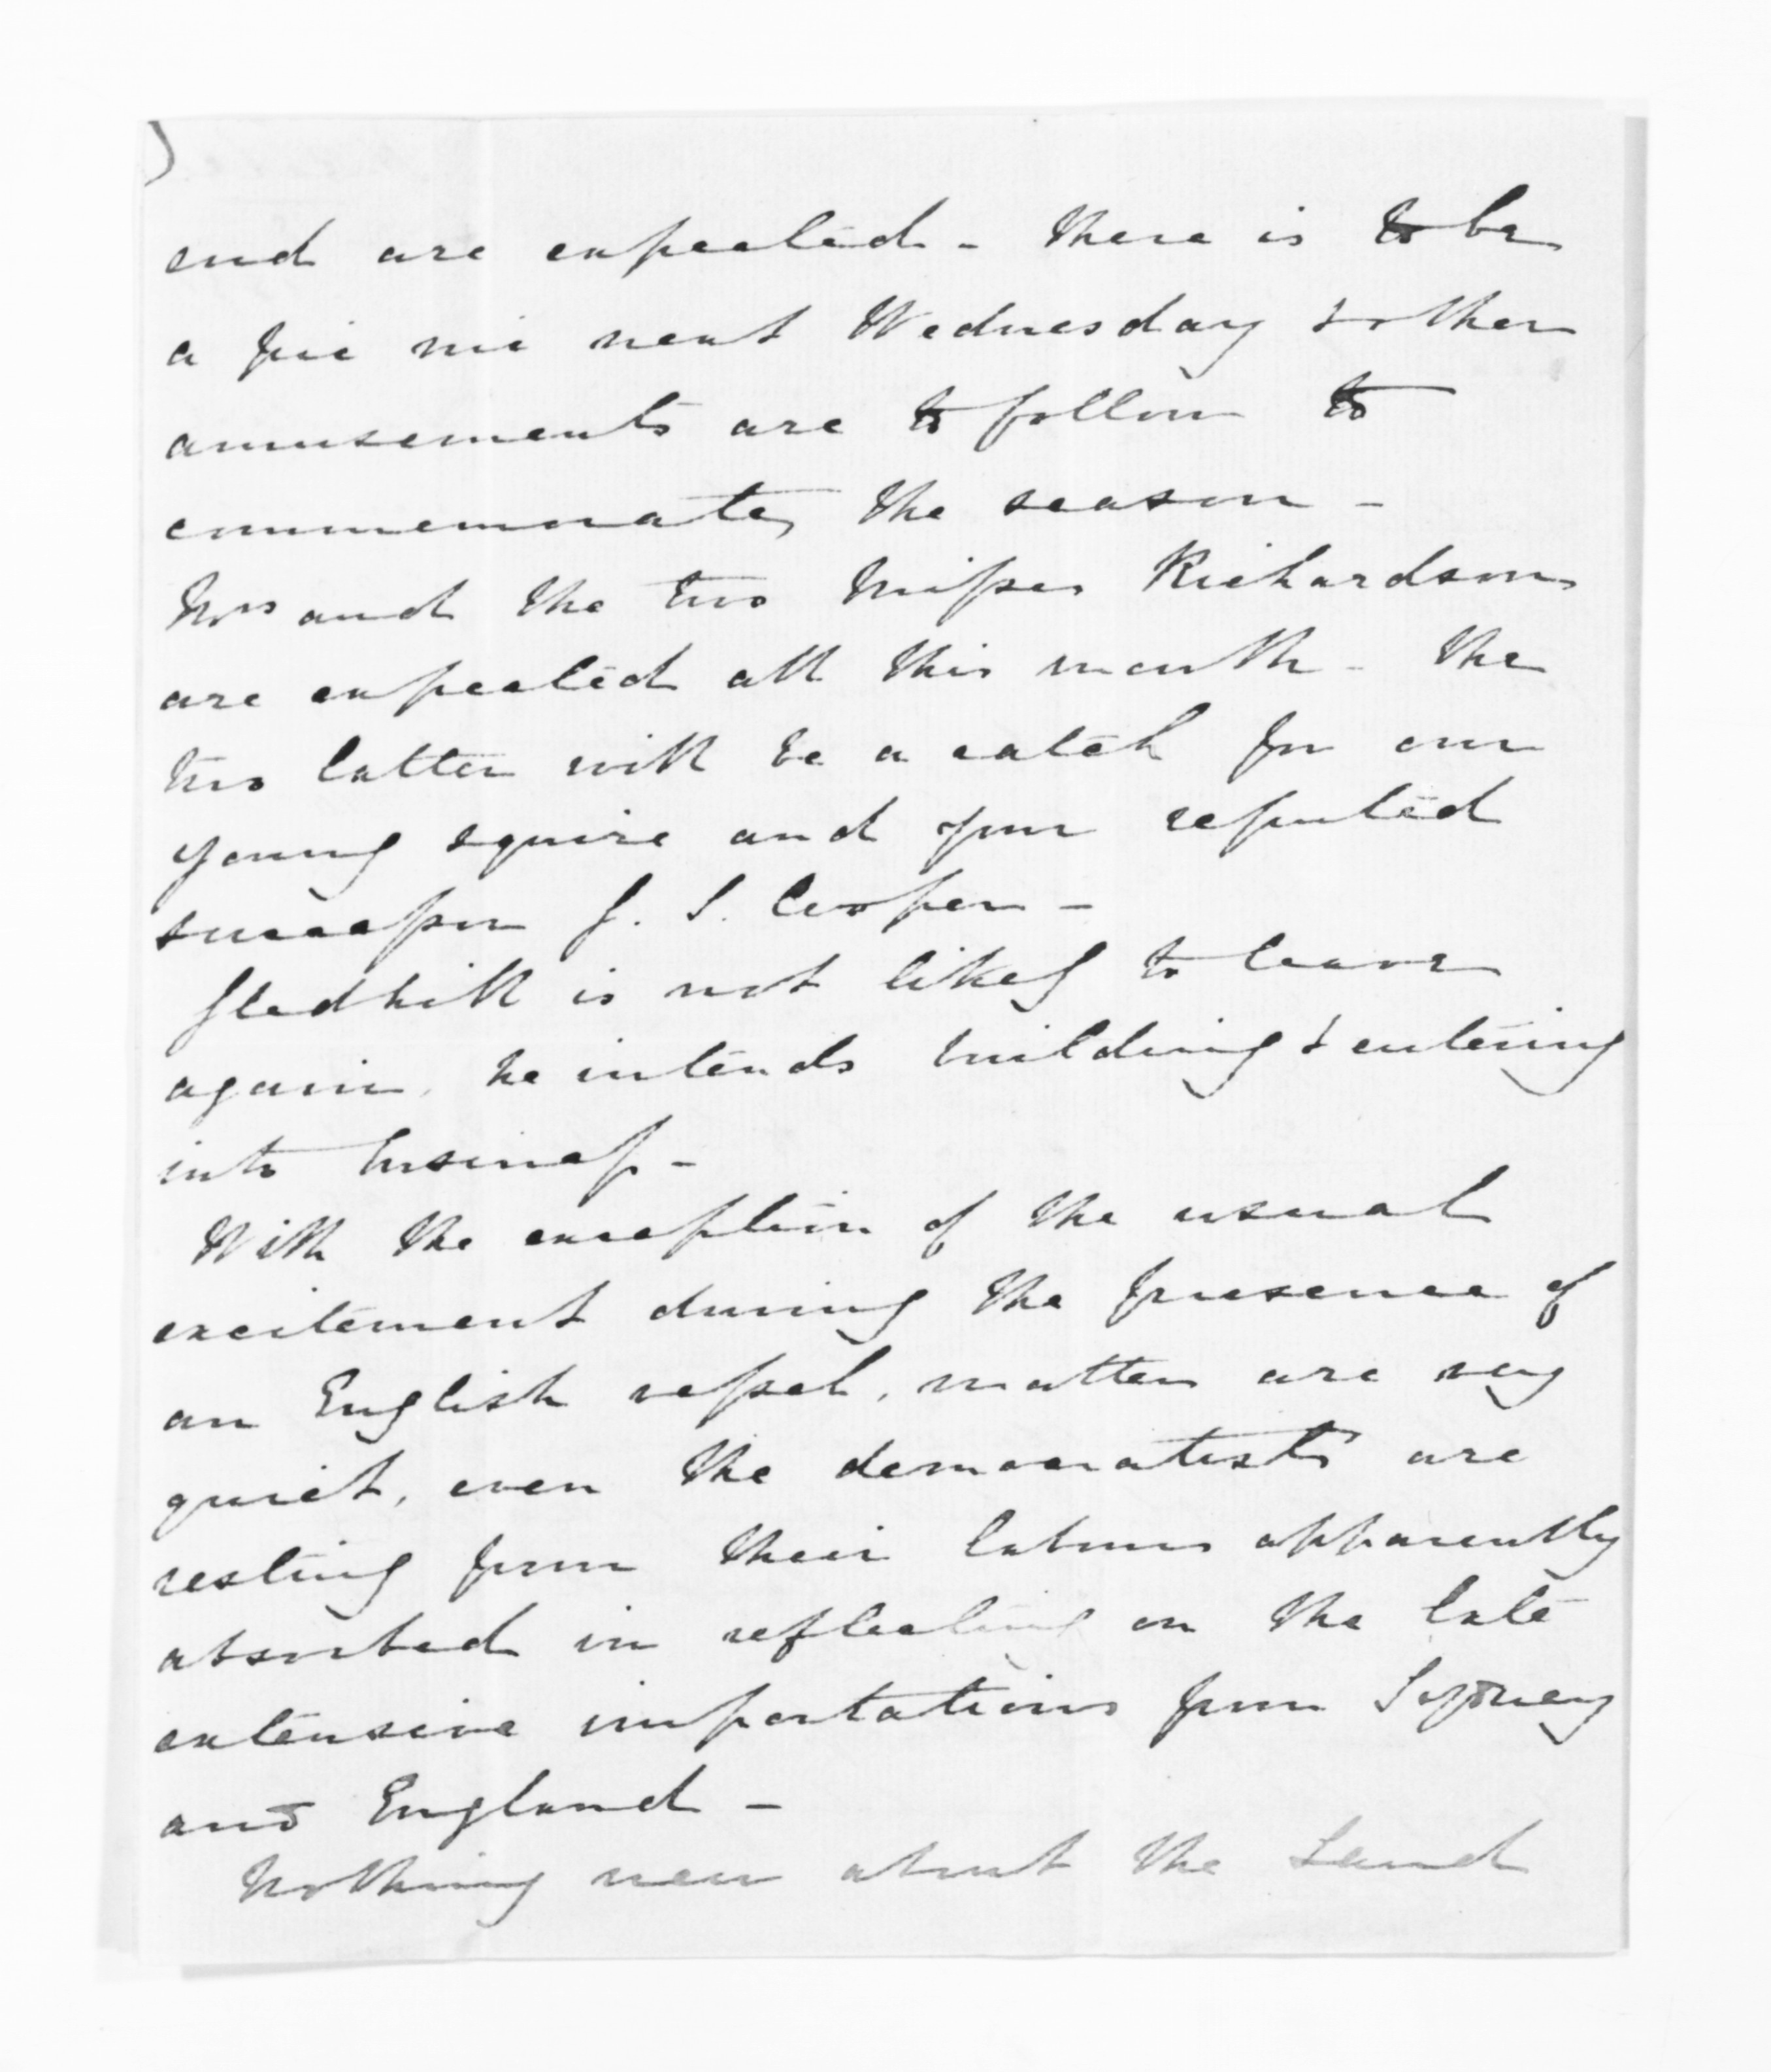 end are expected - there is to be
a pic nic next Wednesday & other
amusements are to follow to
commemorate, the season -
Mrs and the two Misses Richardsons
are expected all this month - the
two latter will be a catch for our
young squire and your reputed
successor J. S. Cooper -
Gledhill is not likely to leave
again, he intends building & entering
into business -
With the exception of the usual
excitement during the presence of
an English vessel, matters are very
quiet, even the democratists are
resting from their labours apparently
absorbed in reflecting on the late
extensive importations from Sydney
and England -
Nothing new about the Land